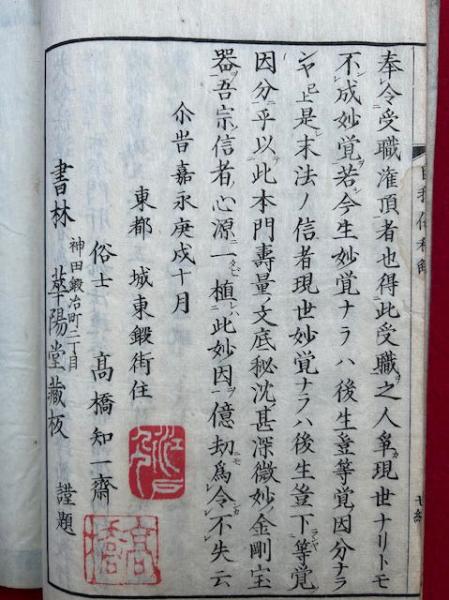 奉令受職潅頂者也得此受職之人争現世ナリトモ
不成妙覚若今生妙覚ナラハ後生豈等覚因分ナラ
ンヤ已上是末法ノ信者現世妙覚ナラハ後生豈下等覚
因分乎以此本門壽量ノ文底秘沈甚深微妙ノ金剛宝
器ヲ吾宗信者ノ心源ニ一タビ植レハ此妙因ヲ億劫ニモ為令不失云
尒旹嘉永庚戌十月
東都 城東鍛街住
俗士 髙橋知一齋 謹題
神田鍛冶町二丁目
書林 華陽堂藏板
江戸
髙橋